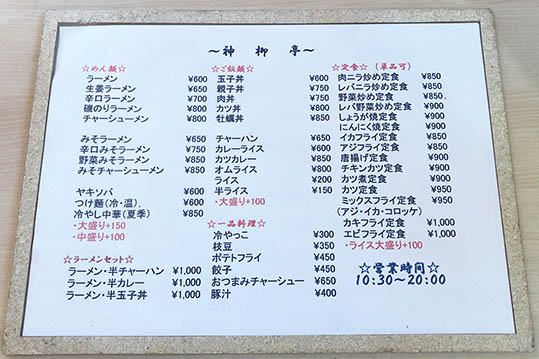 ～神 柳 亭～
☆めん類☆
ラーメン ¥600
生姜ラーメン ¥650
辛口ラーメン ¥700
磯のりラーメン ¥800
チャーシューメン ¥800
みそラーメン ¥650
辛口みそラーメン ¥750
野菜みそラーメン ¥850
みそチャーシューメン ¥850
ヤキソバ ¥600
つけ麺(冷・温)、 ¥600
冷やし中華(夏季) ¥850
・大盛り+150
・中盛り+100
☆ラーメンセット☆
ラーメン・半チャーハン ¥1,000
ラーメン・半カレー ¥1,000
ラーメン・半玉子丼 ¥1,000
☆ご飯類☆
玉子丼 ¥600
親子丼 ¥750
肉丼 ¥750
カツ丼 ¥800
牡蠣丼 ¥800
チャーハン ¥650
カレーライス ¥650
カツカレー ¥850
オムライス ¥850
ライス ¥200
半ライス ¥150
・大盛り+100
☆一品料理☆
冷やっこ ¥300
枝豆 ¥350
ポテトフライ ¥450
餃子 ¥450
おつまみチャーシュー ¥650
豚汁 ¥400
☆定食☆ (単品可)
肉ニラ炒め定食 ¥850
レバニラ炒め定食 ¥850
野菜炒め定食 ¥850
レバ野菜炒め定食 ¥900
しょうが焼定食 ¥900
にんにく焼定食 ¥900
イカフライ定食 ¥850
アジフライ定食 ¥850
唐揚げ定食 ¥900
チキンカツ定食 ¥900
カツ煮定食 ¥900
カツ定食 ¥900
ミックスフライ定食 ¥950
(アジ・イカ・コロッケ)
カキフライ定食 ¥1,000
エビフライ定食 ¥1,000
・ライス大盛り+100
☆営業時間☆
10:30～20:00